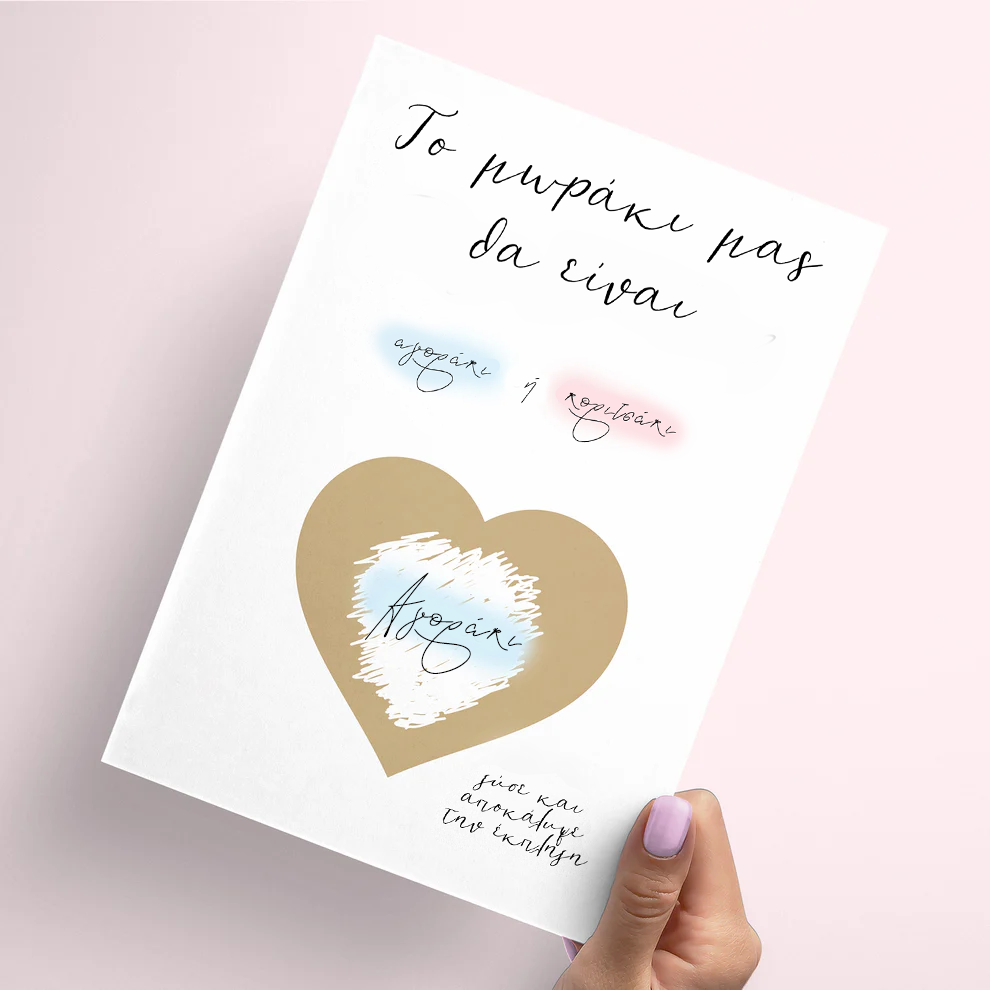 Το μωράκι μας
θα είναι
αγοράκι ή κοριτσάκι
Αγοράκι
ξύσε και
αποκάλυψε
την έκπληξη